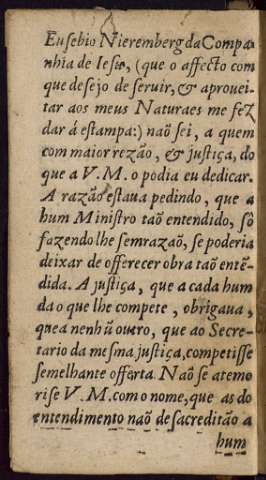 Eusebio Nieremberg da Compa-
nhia de Iesu, (que o affecto com
que desejo de seruir, & aprouei-
tar aos meus Naturaes me fez
dar á estampa:) naõ sei, a quem
com maior rezão, & justiça, do
que a V. M. o podia eu dedicar.
A razão estaua pedindo, que a
hum Ministro taõ entendido, sô
fazendolhe semrazaõ, se poderia
deixar de offerecer obra taõ entẽ-
dida. A justiça, que a cada hum
da o que lhe compete, obrigaua,
que a nenhũ outro, que ao Secre-
tario da mesma justiça, competisse
semelhante offerta. Naõ se atemo
rise V. M. com o nome, que as do
entendimento naõ desacreditão a
hum